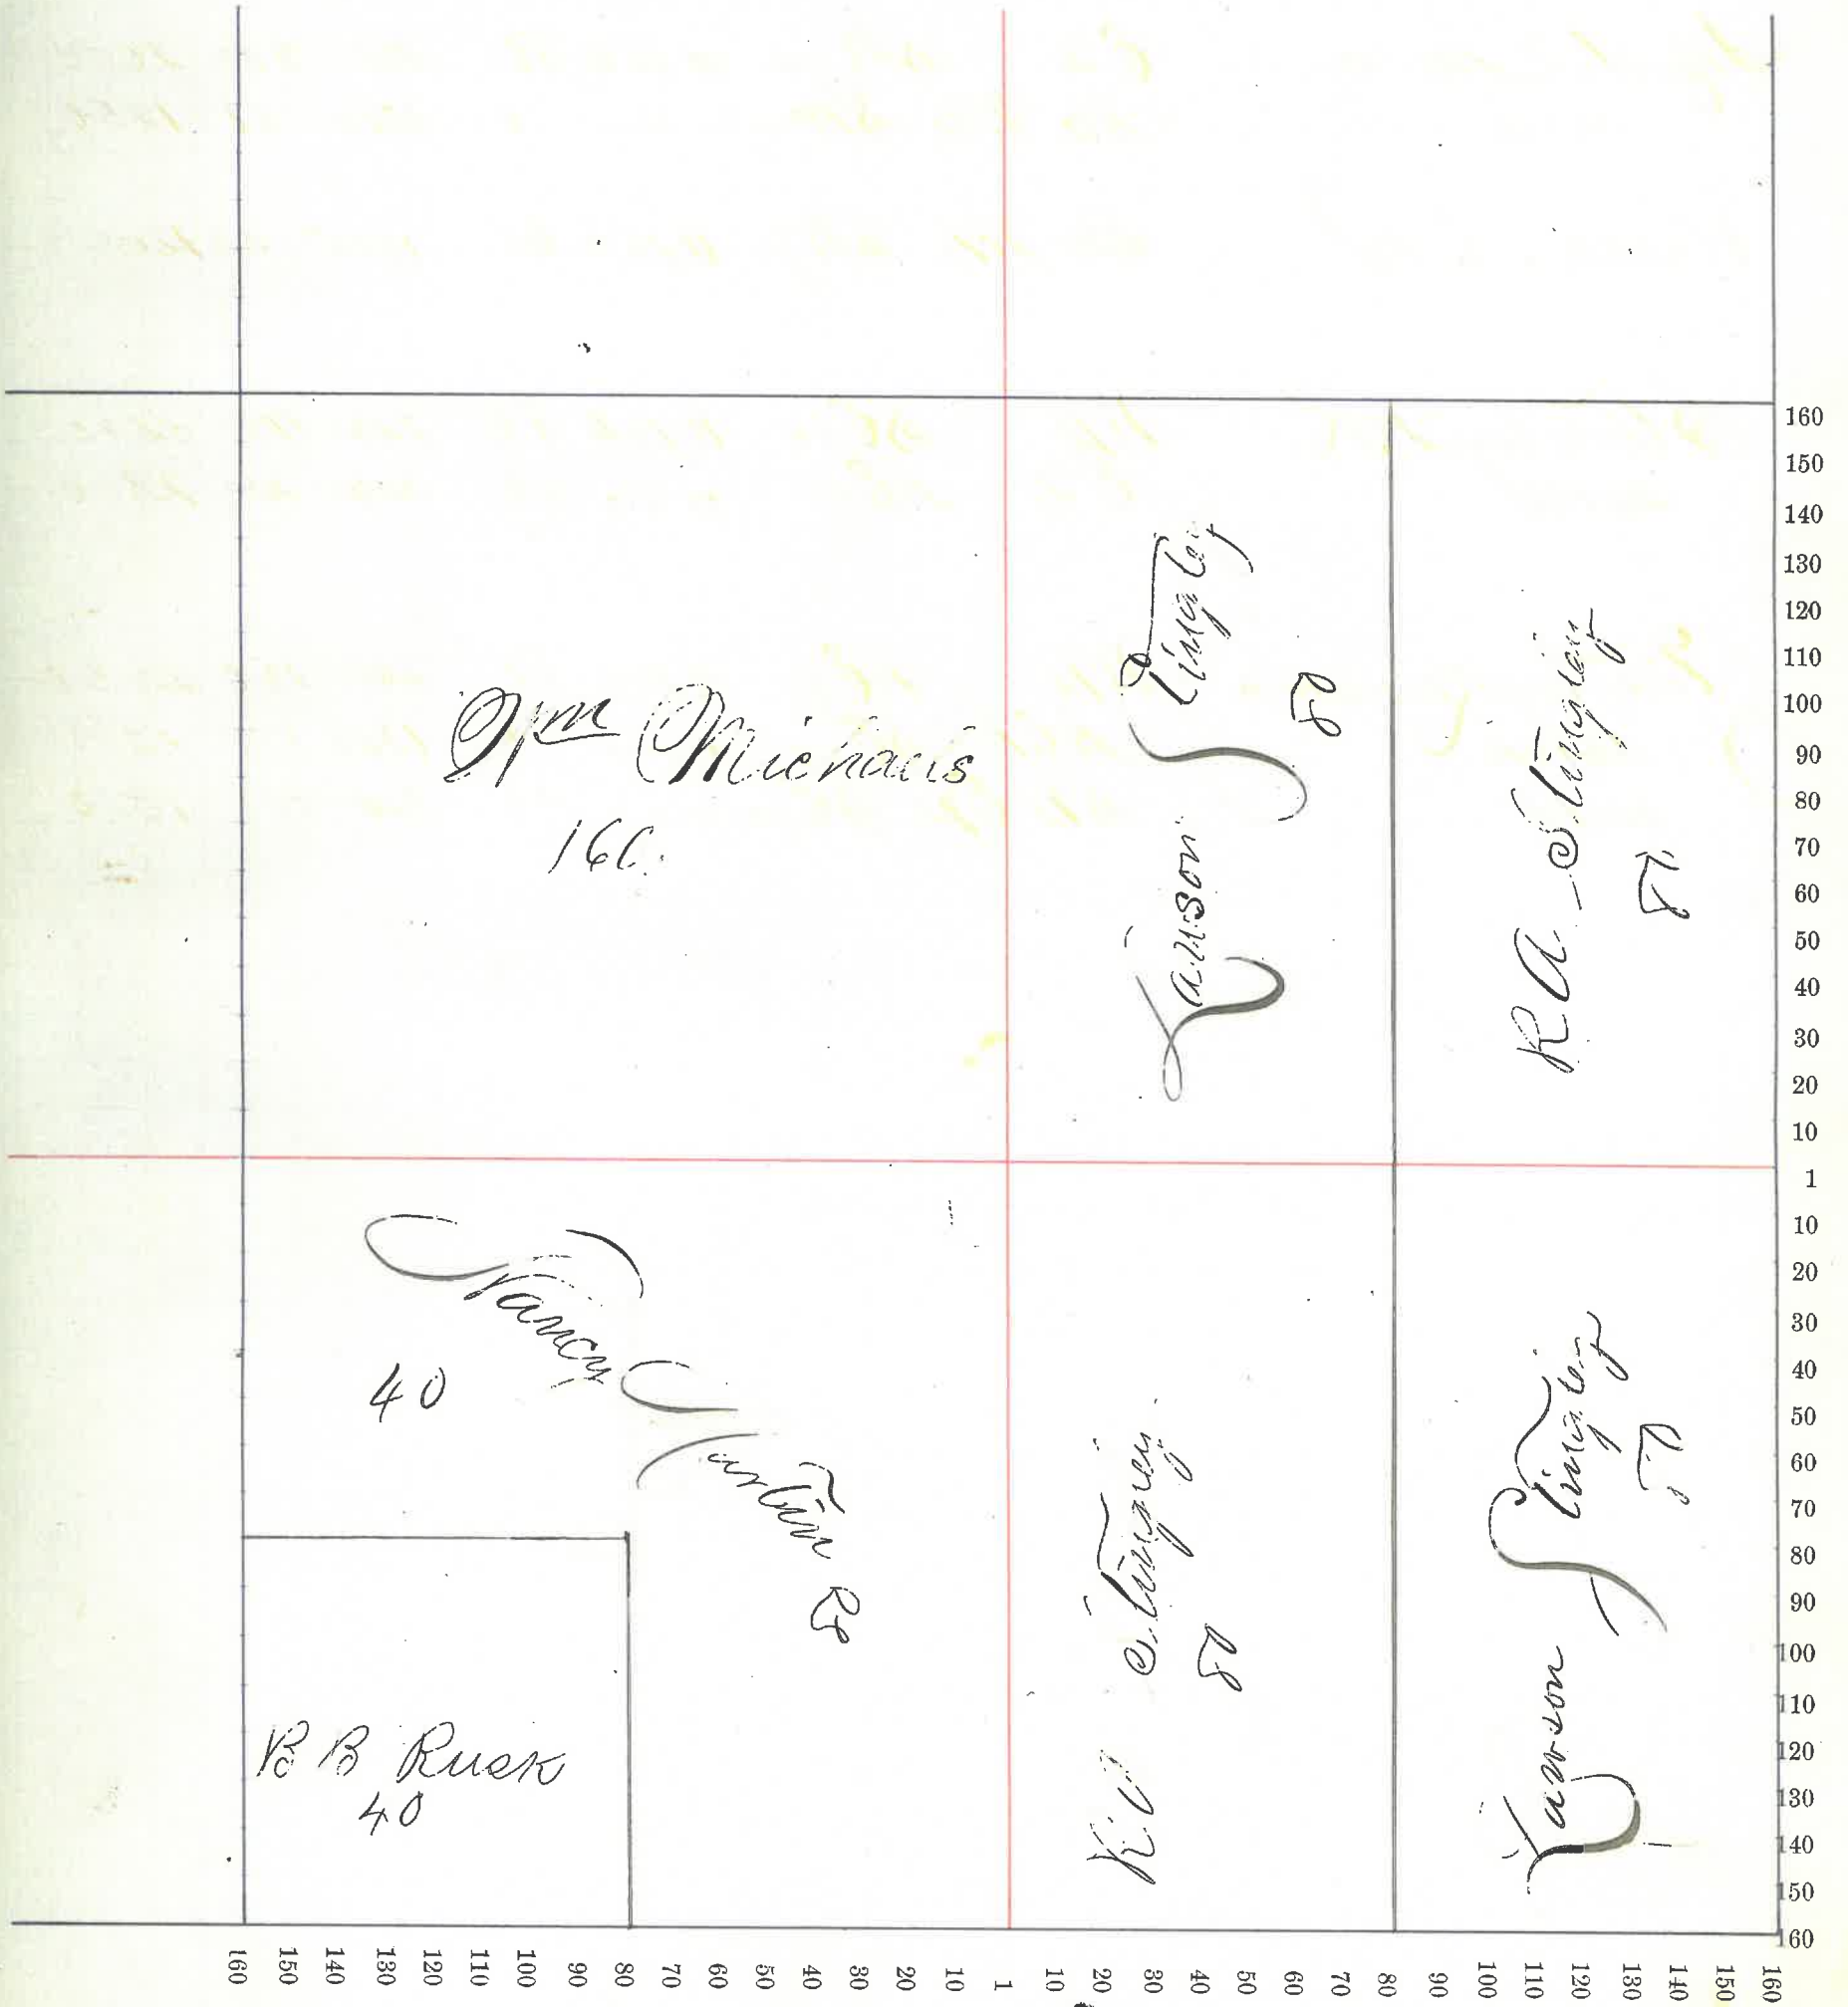 Wm Michaels
160.
Lawson Tingley
80
R A Tingley
80
Nancy Curtin 80
40
B B Rusk
40
R A Tingley
80
Lawson Tingley
80
160
150
140
130
120
110
100
90
80
70
60
50
40
30
20
10
1
10
20
30
40
50
60
70
80
90
100
110
120
130
140
150
160
160 150 140 130 120 110 100 90 80 70 60 50 40 30 20 10 1 10 20 30 40 50 60 70 80 90 100 110 120 130 140 150 160